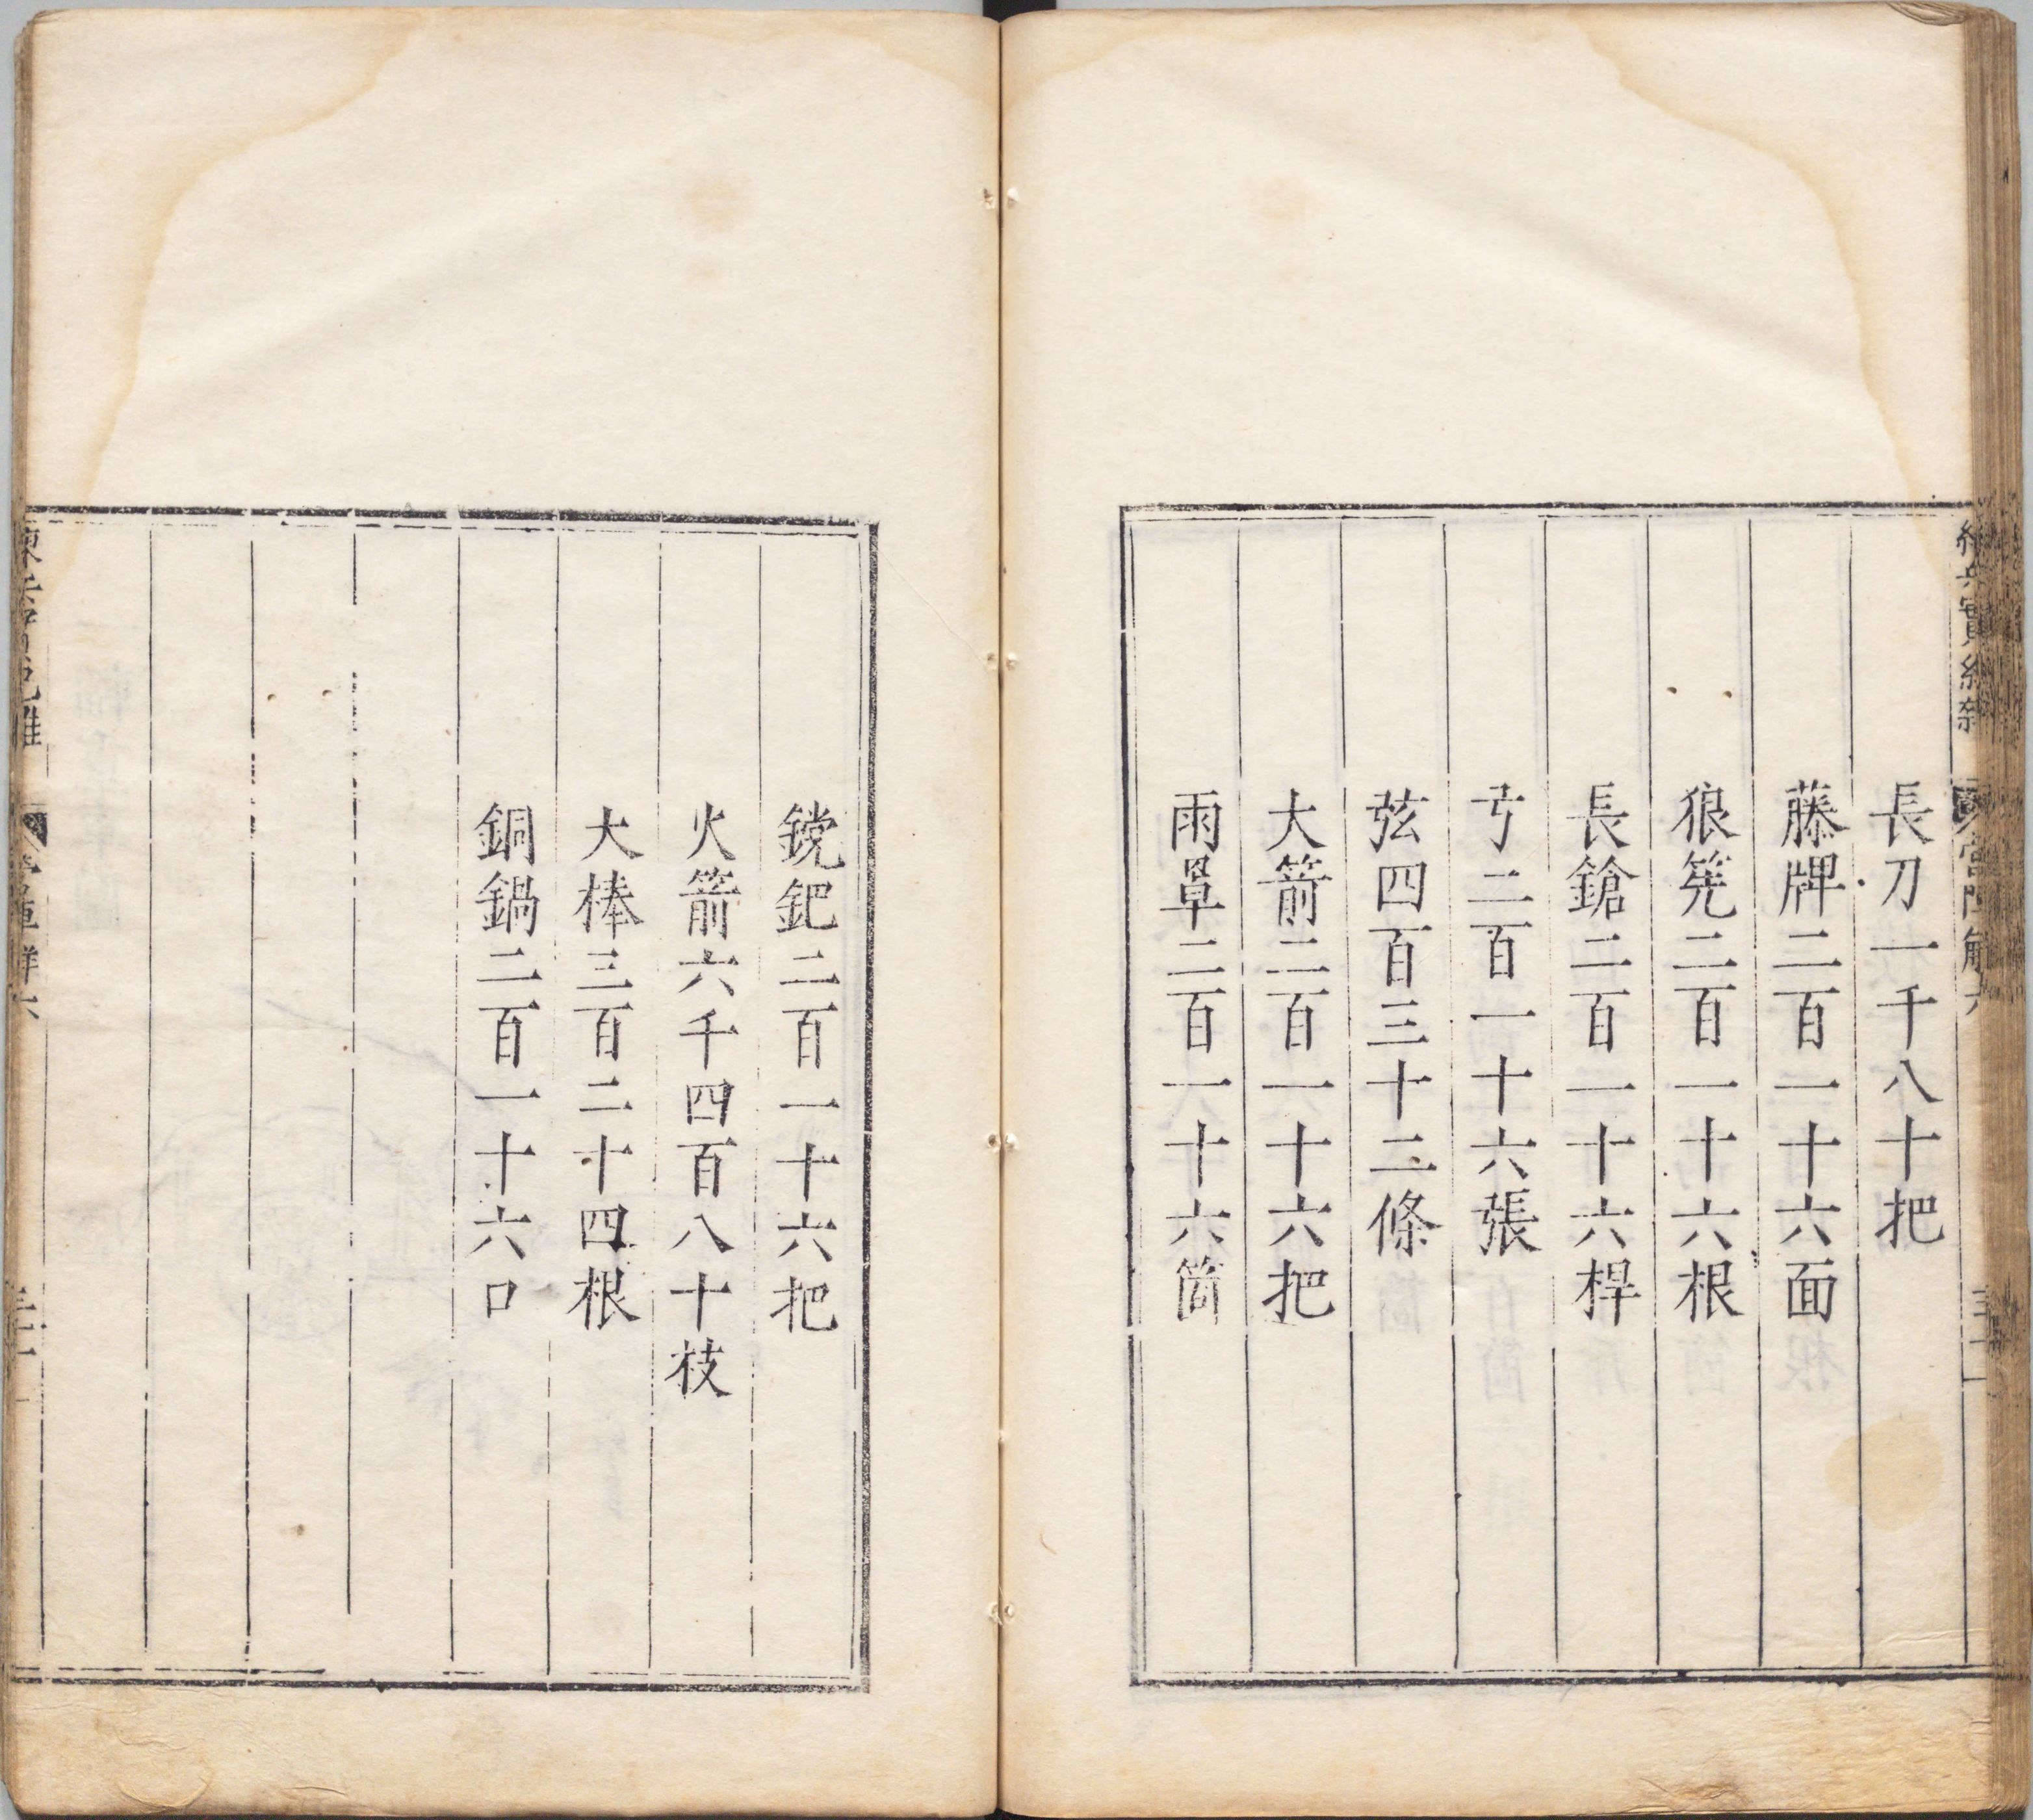 長刀一千八十把
藤牌二百一十六面
狼筅二百一十六根
長鎗二百一十六桿
弓二百一十六張
弦四百三十二條
大箭二百一十六把
雨罩二百一十六箇
鎲鈀二百一十六把
火箭六千四百八十枝
大棒三百二十四根
銅鍋二百一十六口